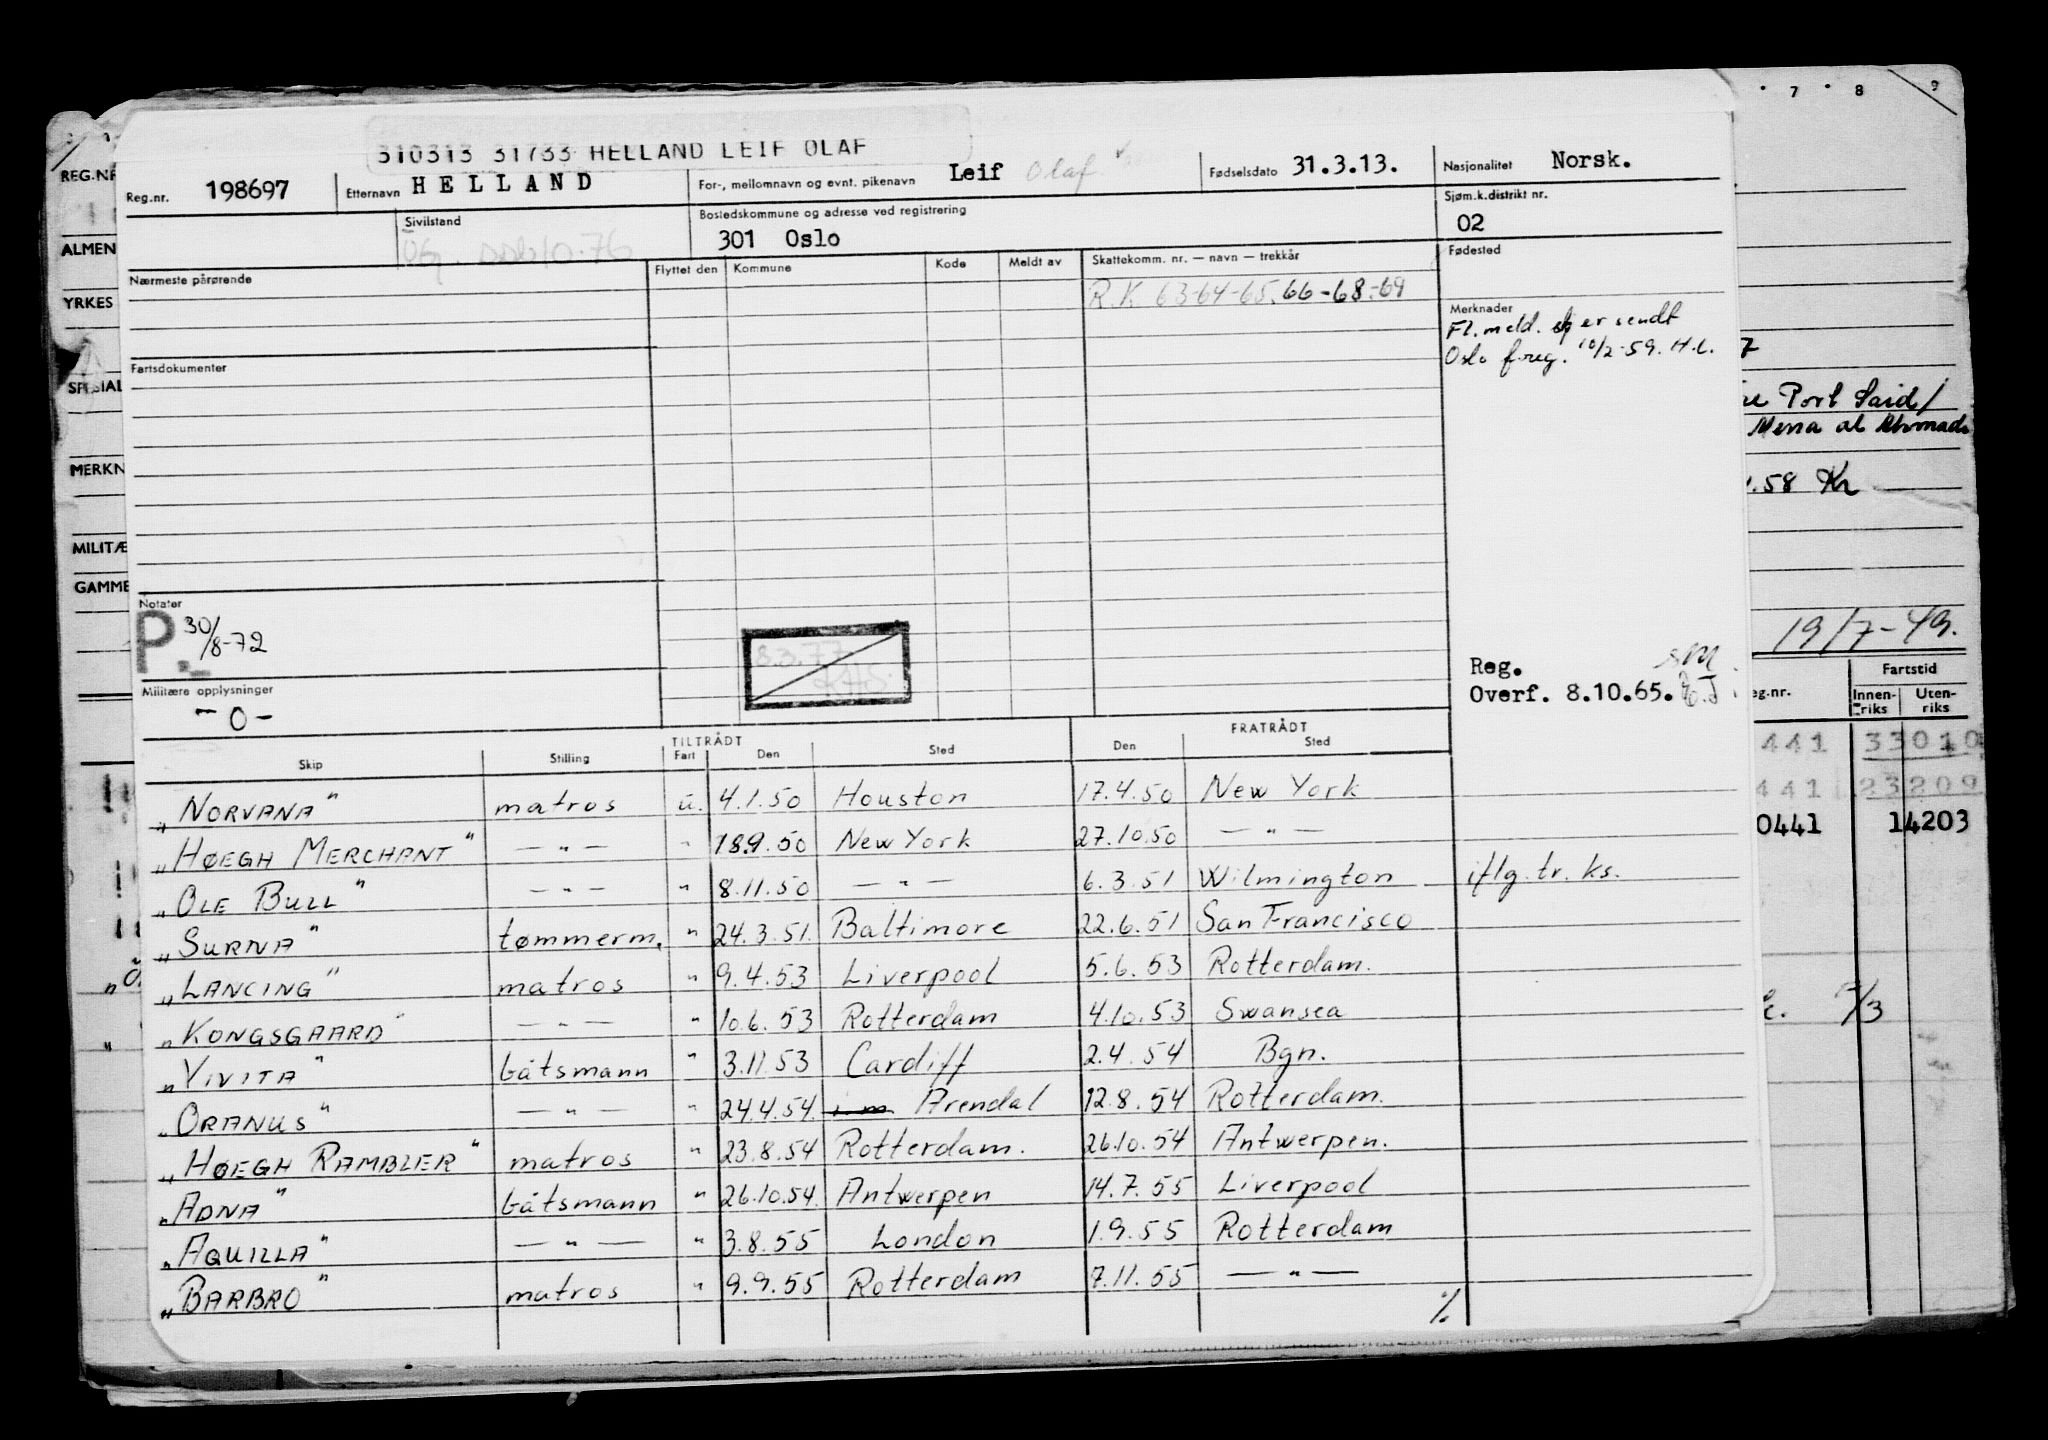 310313 31733 HELLAND LEIF OLAF
Reg.nr. 198697 Etternavn HELLAND For-, mellomnavn og evnt. pikenavn Leif Olaf Fødselsdato 31.3.13. Nasjonalitet Norsk.
Sivilstand Bostedskommune og adresse ved registrering 301 Oslo Sjøm.k.distrikt nr. 02
Nærmeste pårørende Flyttet den Kommune Kode Meldt av Skattekomm. nr. — navn — trekkår Fødested
R.K. 63-64-65.66-68-69
Merknader
Fl. meld. er sendt
Oslo f.reg. 10/2-59. H.L.
Fartsdokumenter
Notater
P. 30/8-72
8.3.77
Militære opplysninger
- 0 -
Reg.
Overf. 8.10.65.
TILTRÅDT FRATRÅDT
Skip Stilling Fart Den Sted Den Sted
„NORVANA" matros u. 4.1.50 Houston 17.4.50 New York
„HØEGH MERCHANT" — " — " 18.9.50 New York 27.10.50 — " —
„OLE BULL" — " — " 8.11.50 — " — 6.3.51 Wilmington iflg. tr. ks.
„SURNA" tømmerm. " 24.3.51. Baltimore 22.6.51 San Francisco
„LANCING" matros " 9.4.53 Liverpool 5.6.53 Rotterdam.
„KONGSGAARD" — " — " 10.6.53 Rotterdam 4.10.53 Swansea
„VIVITA" båtsmann " 3.11.53 Cardiff 2.4.54 Bgn.
„ORANUS" — " — " 24.4.54. Arendal 12.8.54 Rotterdam.
„HØEGH RAMBLER" matros " 23.8.54 Rotterdam. 26.10.54 Antwerpen.
„ADNA" båtsmann " 26.10.54. Antwerpen 14.7.55 Liverpool
„AQUILLA" — " — " 3.8.55 London 1.9.55 Rotterdam
„BARBRO" matros " 9.9.55 Rotterdam 7.11.55 — " —
%
REG.NR
ALMEN
YRKES
SPESIAL
MERKN
MILITÆ
GAMME
7 8 9
Port Said/
Mena al Ahmadi
.58 Kr
19/7-49.
eg.nr. Fartstid
Innen-riks Uten-riks
441 33010
441 23209
0441 14203